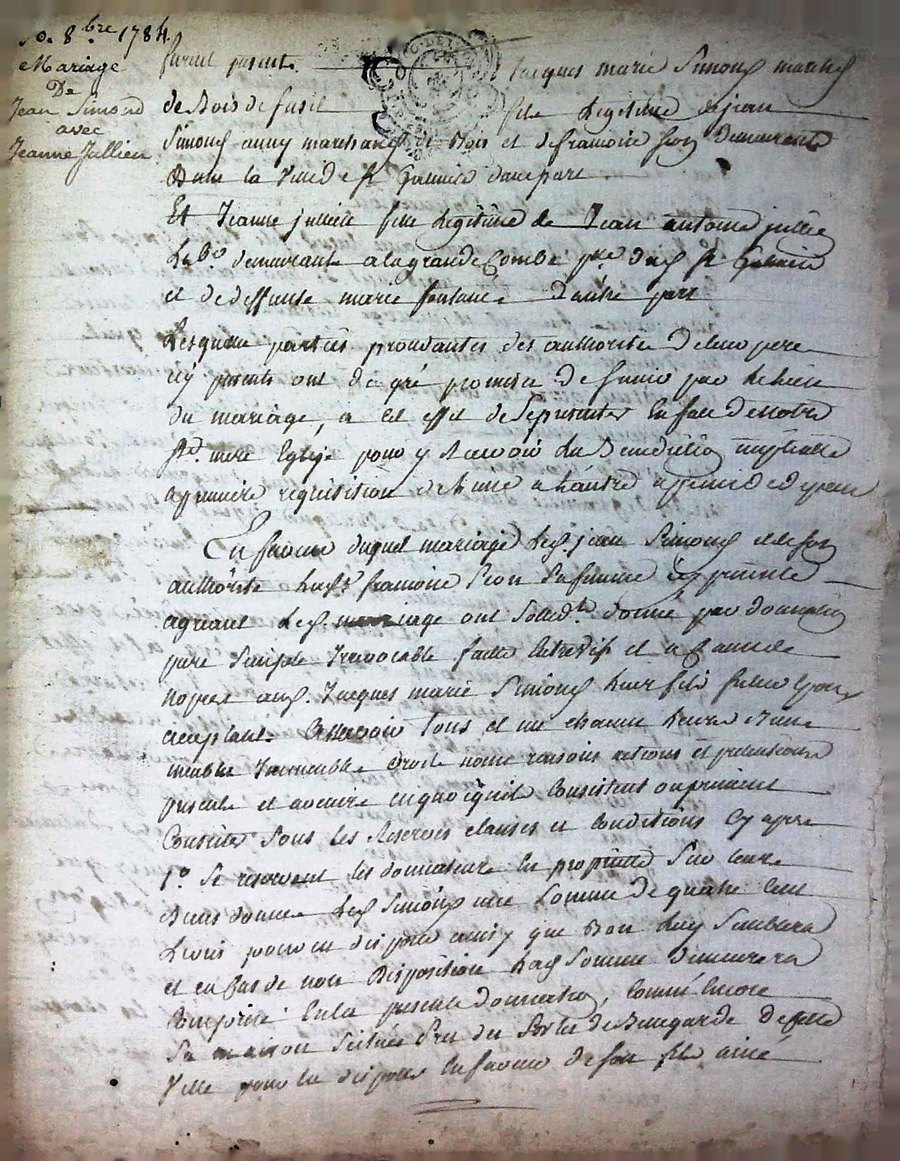 8.bre 1784
Mariage
De
Jean Simond
avec
Jeanne Jullien
furent presents Jacques marie Simond marchd
de Bois de fusil fils Legitime de jean
Simond aussy marchand de Bois et de françoise demeurants
Dans la Ville de st Galmier d'une part
Et Jeanne jullien fille Legitime de Jean antoine jullien
demeurante a la grande Combe psse dud st Galmier
et de deffunte marie fontanes D'autre part
Lesquelles parties procedantes des authorités De leurs peres
icy presents ont De gré promis De s'unir par le lien
du mariage, a cet effet de se presenter En face de Notre
Ste. mere Eglise pour y Recevoir La Benediction nuptialle
a premiere requisition de l'une a l'autre a peine de depens
En faveur duquel mariage Led. jean Simond et de son
authorité lad. françoise sa femme icy presente
agreant Led. mariage ont Solidt. donné par donnation
pure Simple Irrevocable faitte Entrevifs et a cause de
nopces aud. Jacques marie Simond leur fils futur Epoux
acceptant. Assavoir Tous et un chacun leurs Biens
meubles Immeubles Droits noms raisons actions et pretentions
presents et avenir en quoiqu'ils Consistent ou puissent
Consister Sous les Reserves clauses et Conditions Cy apres
1.o Se reservent les donnateurs En proprieté Sur leurs
Biens donnés Led. Simond une Somme De quatre Cent
Livres pour en disposer ainsy que Bon luy Semblera
et en Cas de non Disposition lad. Somme Demeurera
Comprise En la presente donnation, Comm'Encore
Sa maison Scituée De cette
Ville pour En disposer En faveur De son fils ainé